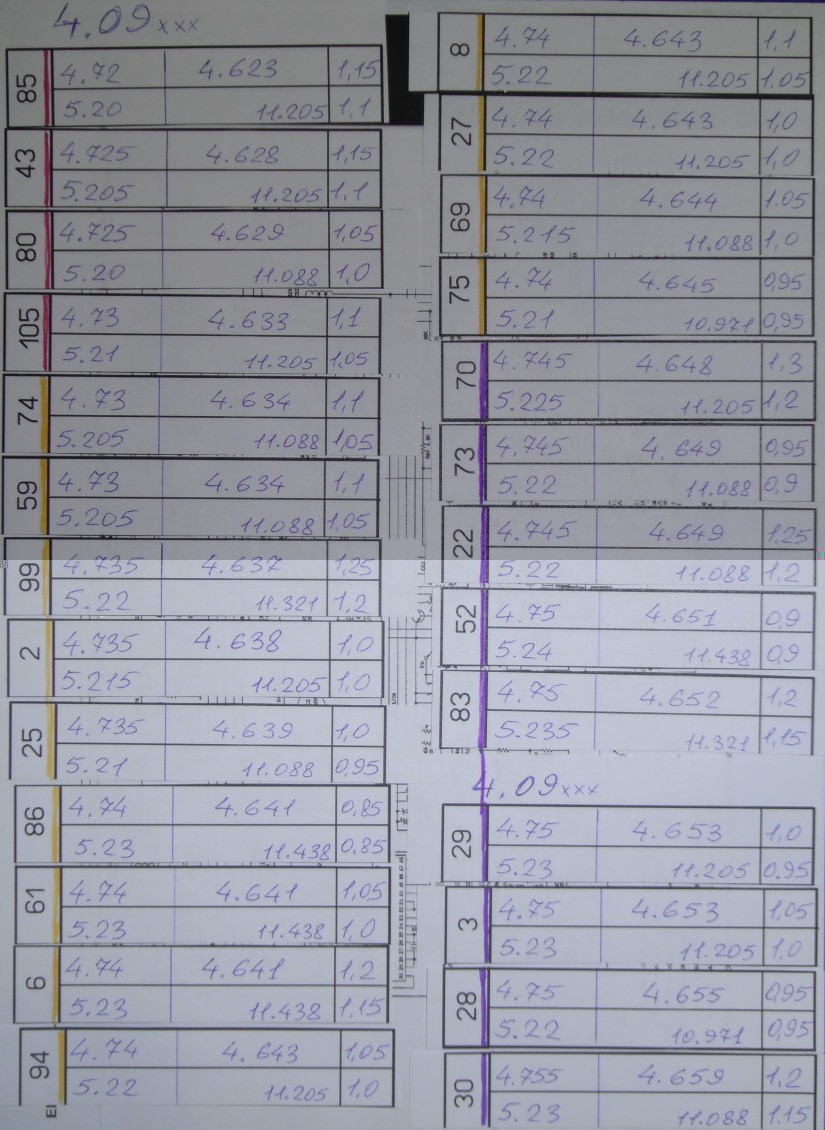 4.09xxx
85 4.72 4.623 1,15
5.20 11.205 1,1
43 4.725 4.628 1,15
5.205 11.205 1,1
80 4.725 4.629 1,05
5.20 11.088 1,0
105 4.73 4.633 1,1
5.21 11.205 1,05
74 4.73 4.634 1,1
5.205 11.088 1,05
59 4.73 4.634 1,1
5.205 11.088 1,05
99 4.735 4.637 1,25
5.22 11.321 1,2
2 4.735 4.638 1,0
5.215 11.205 1,0
25 4.735 4.639 1,0
5.21 11.088 0,95
86 4.74 4.641 0,85
5.23 11.438 0,85
61 4.74 4.641 1,05
5.23 11.438 1,0
6 4.74 4.641 1,2
5.23 11.438 1,15
94 4.74 4.643 1,05
5.22 11.205 1,0
EI
8 4.74 4.643 1,1
5.22 11.205 1,05
27 4.74 4.643 1,0
5.22 11.205 1,0
69 4.74 4.644 1,05
5.215 11.088 1,0
75 4.74 4.645 0,95
5.21 10.971 0,95
70 4.745 4.648 1,3
5.225 11.205 1,2
73 4.745 4.649 0,95
5.22 11.088 0,9
22 4.745 4.649 1,25
5.22 11.088 1,2
52 4.75 4.651 0,9
5.24 11.438 0,9
83 4.75 4.652 1,2
5.235 11.321 1,15
4.09xxx
29 4.75 4.653 1,0
5.23 11.205 0,95
3 4.75 4.653 1,05
5.23 11.205 1,0
28 4.75 4.655 0,95
5.22 10.971 0,95
30 4.755 4.659 1,2
5.23 11.088 1,15